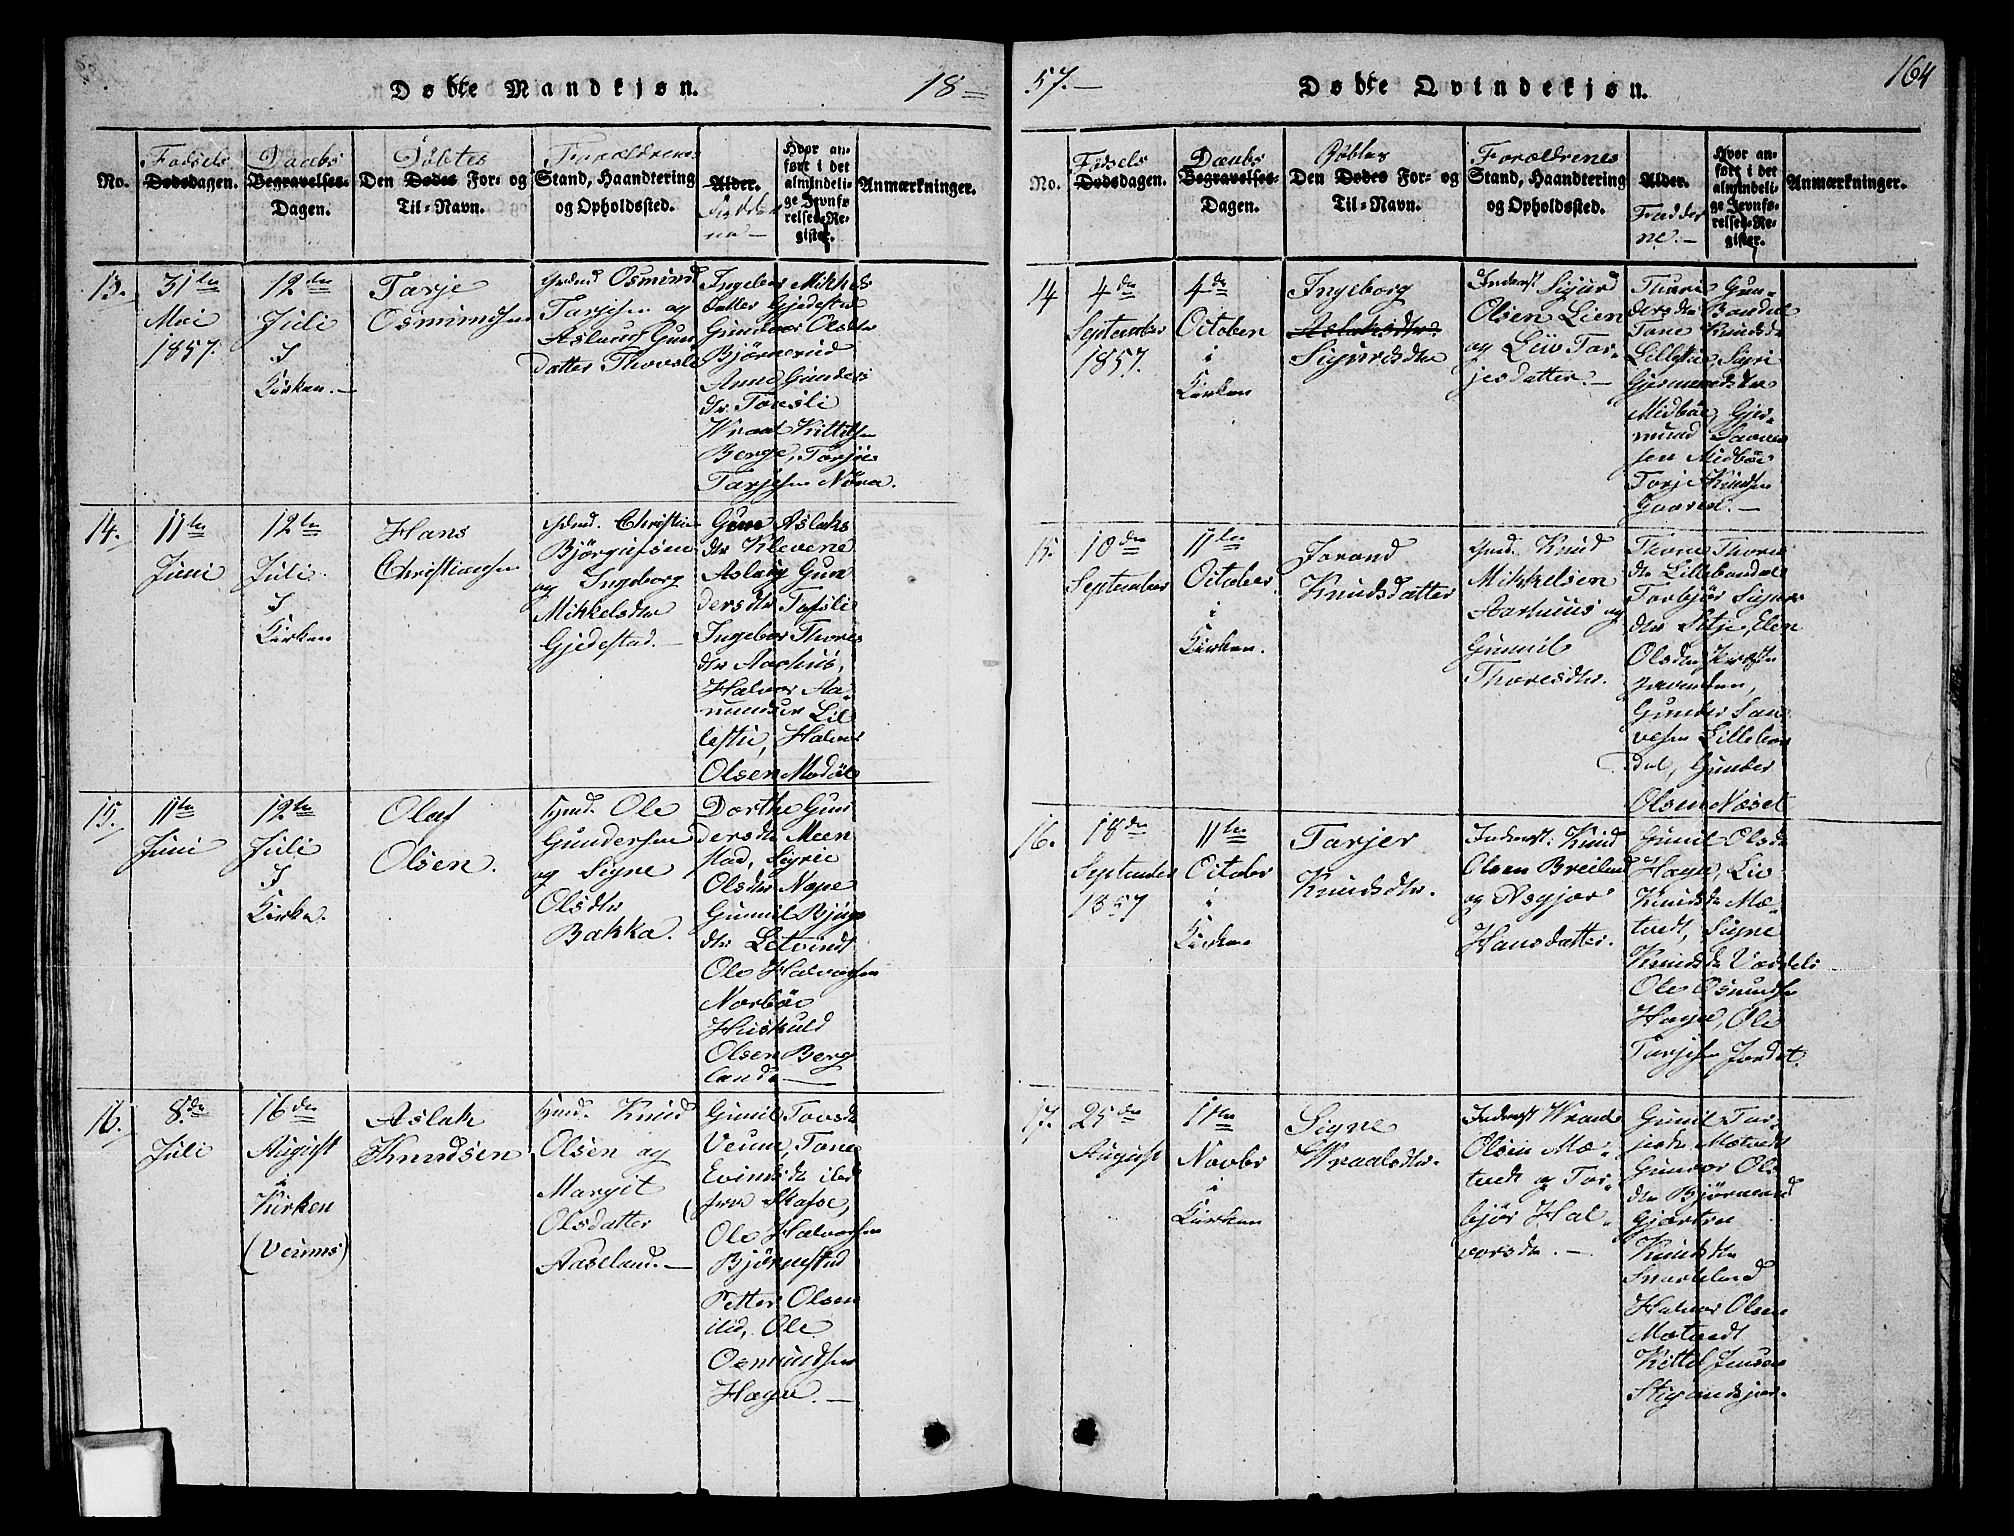 Døbte Mandkjøn. 18
No.
Fødsels
Dødsdagen.
Daabs
Begravelses-
Dagen.
Døbtes
Den Dødes For- og
Til-Navn.
Forældrenes
Stand, Haandtering
og Opholdssted.
Alder.
Faddere
ne
Hvor an-
ført i det
almindeli-
ge Jevnfø-
relses-Re-
gister.
Anmærkninger.
13.
31te
Mai
1857.
12de
Juli
I
Kirken.
Tarje
Osmundsen
Osmund
Tarjesen og
Aslaug Gun
datter Thovsle
Ingebor Mikkels
datter Gjedestad
Gunvor Olsdtr
Bjørnerud
Anne Gunders
dtr Tovsli
Wraal Kittilsen
Berge, Torjus
Tarjesen Nöra.
14.
11te
Juni
12te
Juli
I
Kirken
Hans
Christiansen
Christian
Bjørgufsen
og Ingeborg
Mikkelsdtr
Gjedestad.
Gune Aslaks
dtr Klevene
Aslaug Gun
dersdtr Tofsli
Ingebor Thores
dtr Aarhus,
Halvor Aa-
mundsen Lil
lestie, Halvor
Olsen Modöle
15.
11te
Juni
12te
Juli
I
Kirke.
Olaf
Olsen.
Hmd. Ole
Gundersen
og Signe
Olsdtr
Bakka.
Dorthe Gun
dersdtr Moen
stad, Sigrie
Olsdtr Nape
Gunnil Bjørgs
dtr Litvindt
Ole Halvorsen
Norböe
Hiskuld
Olsen Berg
land
16.
8de
Juli
16de
August
i
Kirken
(Veums)
Aslak
Knudsen
Hmd. Knud
Olsen og
Margit
Olsdatter
Aaseland.
Gunil Tovsdtr
Veum, Tone
Evindsdtr
Skafse,
Ole Halvorsen
Bjørnestad
Petter Olsen
ibid, Ole
Osmundsen
Hagen.
57. Døbte Qvindekjøn. 164
No.
Fødsels
Dødsdagen.
Daabs
Begravelses-
Dagen.
Døbtes
Den Dødes For- og
Til-Navn.
Forældrenes
Stand, Haandtering
og Opholdssted.
Alder.
Fadder
ne.
Hvor an-
ført i det
almindeli-
ge Jevnfø-
relses-Re-
gister.
Anmærkninger.
14
4de
September
1857.
4de
October
i
Kirken
Ingeborg
Aslaksdtr.
Sigurdsdtr
Inderst Sigurd
Olsen Lien
og Liv Tar-
jesdatter.
Thore Gun-
dersdtr Bandal
Tone Knudsdtr
Lillestie, Sigri
Gjermundsdtr
Midböe, Gjer-
mund Saave
sen Midböe
Torje Knudsen
Gaaren.
15.
10de
September
11te
October
i
Kirken.
Jorand
Knudsdatter
Hmd. Knud
Mikkelsen
Aarhuus og
Gunnil
Thoresdtr.
Thone Thores
dtr Lillebandal
Torbjør Sigurs
dtr Sitje, Elen
Olsdtr
Gunder Saa
vesen Lilleban
dal, Gunder
Olsen Næset
16.
18de
September
1857
11te
October
i
Kirken
Tarjer
Knudsdtr.
Inderst. Knud
Olsen Breiland
og Asgjør
Hansdatter.
Gunil Olsdtr
Hagen, Liv
Knudsdtr Mæ-
tvedt, Signe
Knudsdtr Vodsleli
Ole Osmundsen
Hagen, Ole
Tarjesen Jordet.
17.
25de
August
1te
Novbr
i
Kirken
Signe
Wraalsdtr.
Inderst Wraal
Olsen Mæ-
tvedt og Tor-
bjør Hal-
vorsdtr.
Gunil Tar-
jesdtr Mætvedt
Gunvor Ols
dtr Bjørnerud
Gjærtru
Knudsdtr
Svarteland
Halvor Olsen
Mætvedt
Kittel Jensen